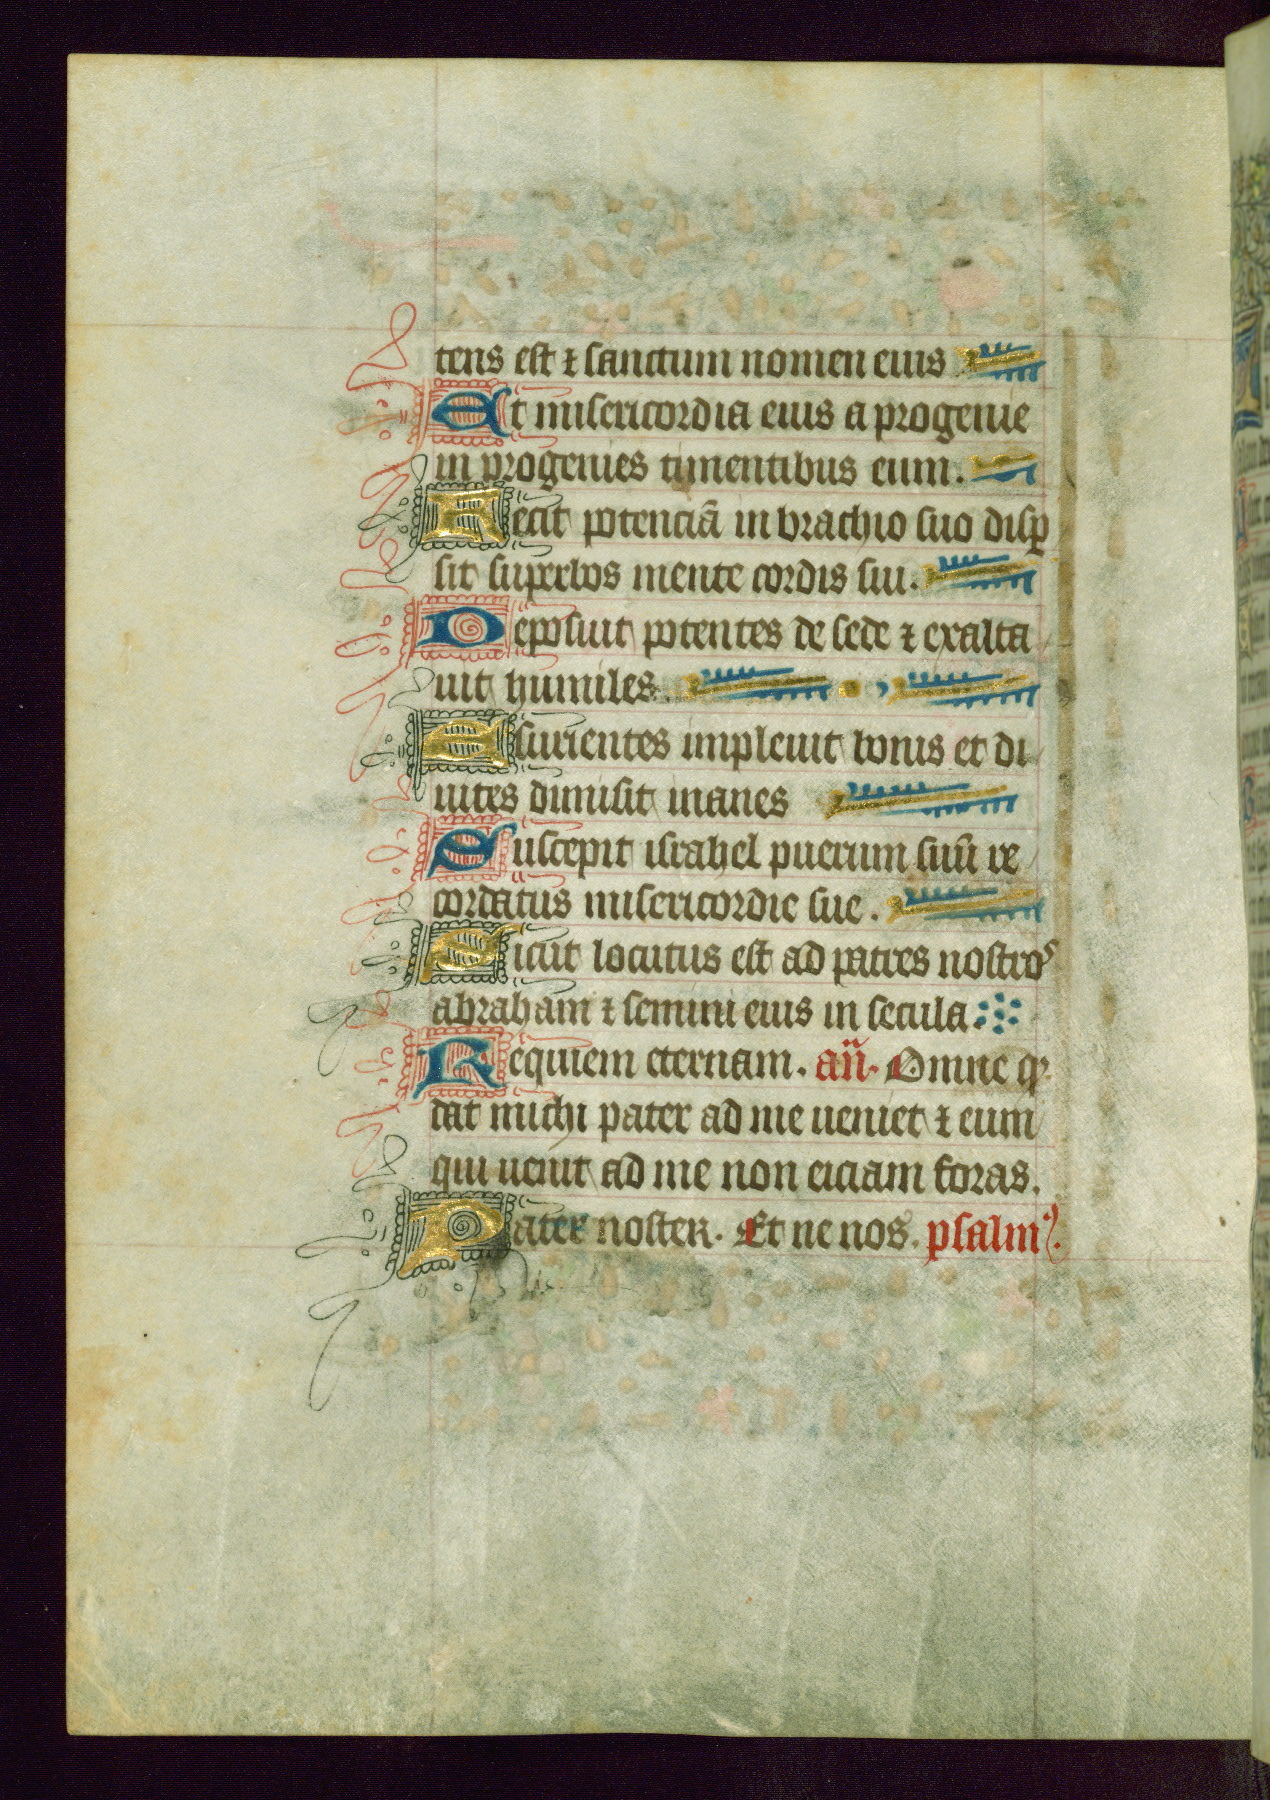 tens est ⁊ sanctum nomen eius
Et misericordia eius a progenie
in progenies timentibus eum.
Fecit potenciā in brachio suo disꝑ
sit superbos mente cordis sui.
Deposuit potentes de sede ⁊ exalta
uit humiles.
Esurientes impleuit bonis et di
uites dimisit inanes
Suscepit israhel puerum suū re
cordatus misericordie sue.
Sicut locutus est ad patres nostros
abraham ⁊ semini eius in secula.
Requiem eternam. an̄. Omne qͥ
dat michi pater ad me ueniet ⁊ eum
qui uenit ad me non eiciam foras.
Pater noster. Et ne nos. psalmꝰ.